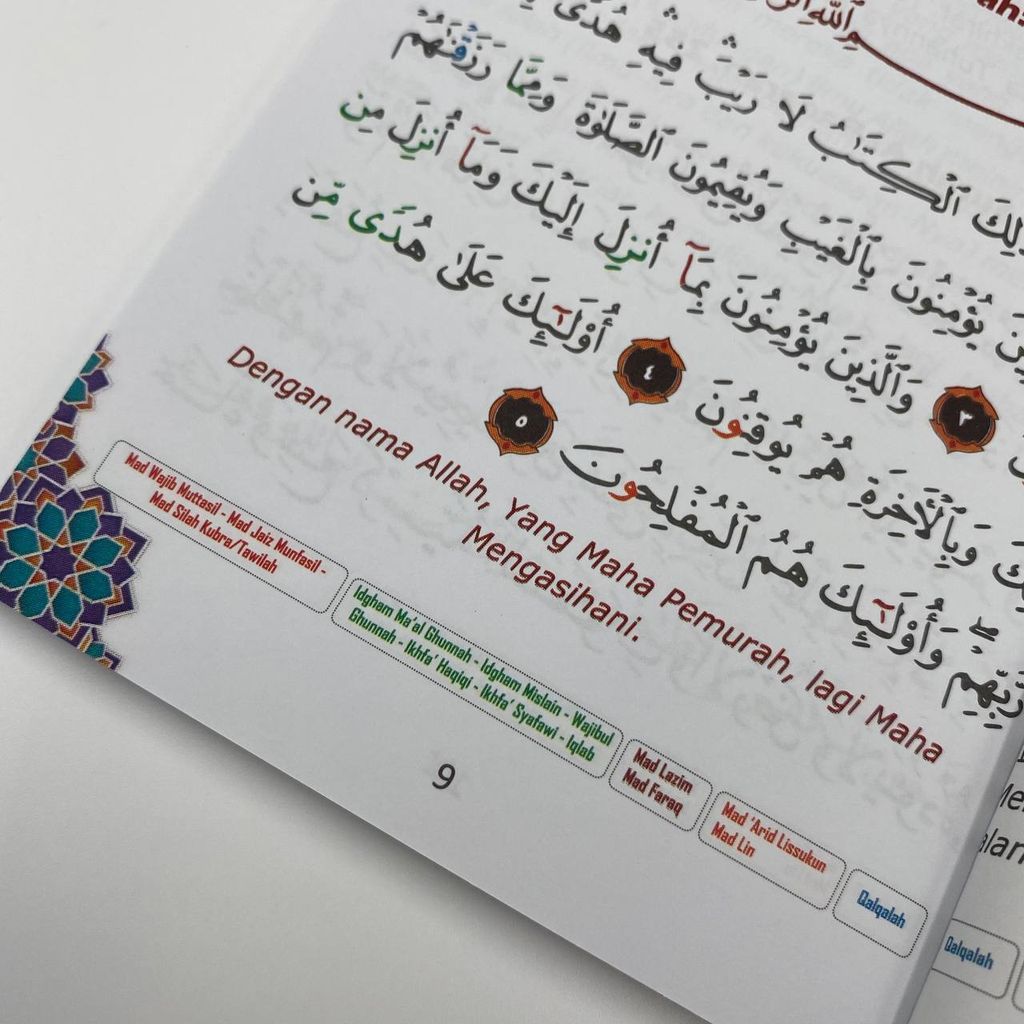 ٱللَّهِ
ٱلْكِتَٰبُ لَا رَيْبَ ۛ فِيهِ ۛ هُدًى
يُؤْمِنُونَ بِٱلْغَيْبِ وَيُقِيمُونَ ٱلصَّلَوٰةَ وَمِمَّا رَزَقْنَٰهُمْ
٣ وَٱلَّذِينَ يُؤْمِنُونَ بِمَآ أُنزِلَ إِلَيْكَ وَمَآ أُنزِلَ مِن
وَبِٱلْأَخِرَةِ هُمْ يُوقِنُونَ ٤ أُو۟لَٰٓئِكَ عَلَىٰ هُدًى مِّن
رَّبِّهِمْ ۖ وَأُو۟لَٰٓئِكَ هُمُ ٱلْمُفْلِحُونَ ٥
Dengan nama Allah, Yang Maha Pemurah, lagi Maha
Mengasihani.
Mad Wajib Muttasil - Mad Jaiz Munfasil -
Mad Silah Kubra/Tawilah
Idgham Ma'al Ghunnah - Idgham Mislain - Wajibul
Ghunnah - Ikhfa' Haqiqi - Ikhfa' Syafawi - Iqlab
Mad Lazim
Mad Faraq
Mad 'Arid Lissukun
Mad Lin
Qalqalah
9
Qalqalah